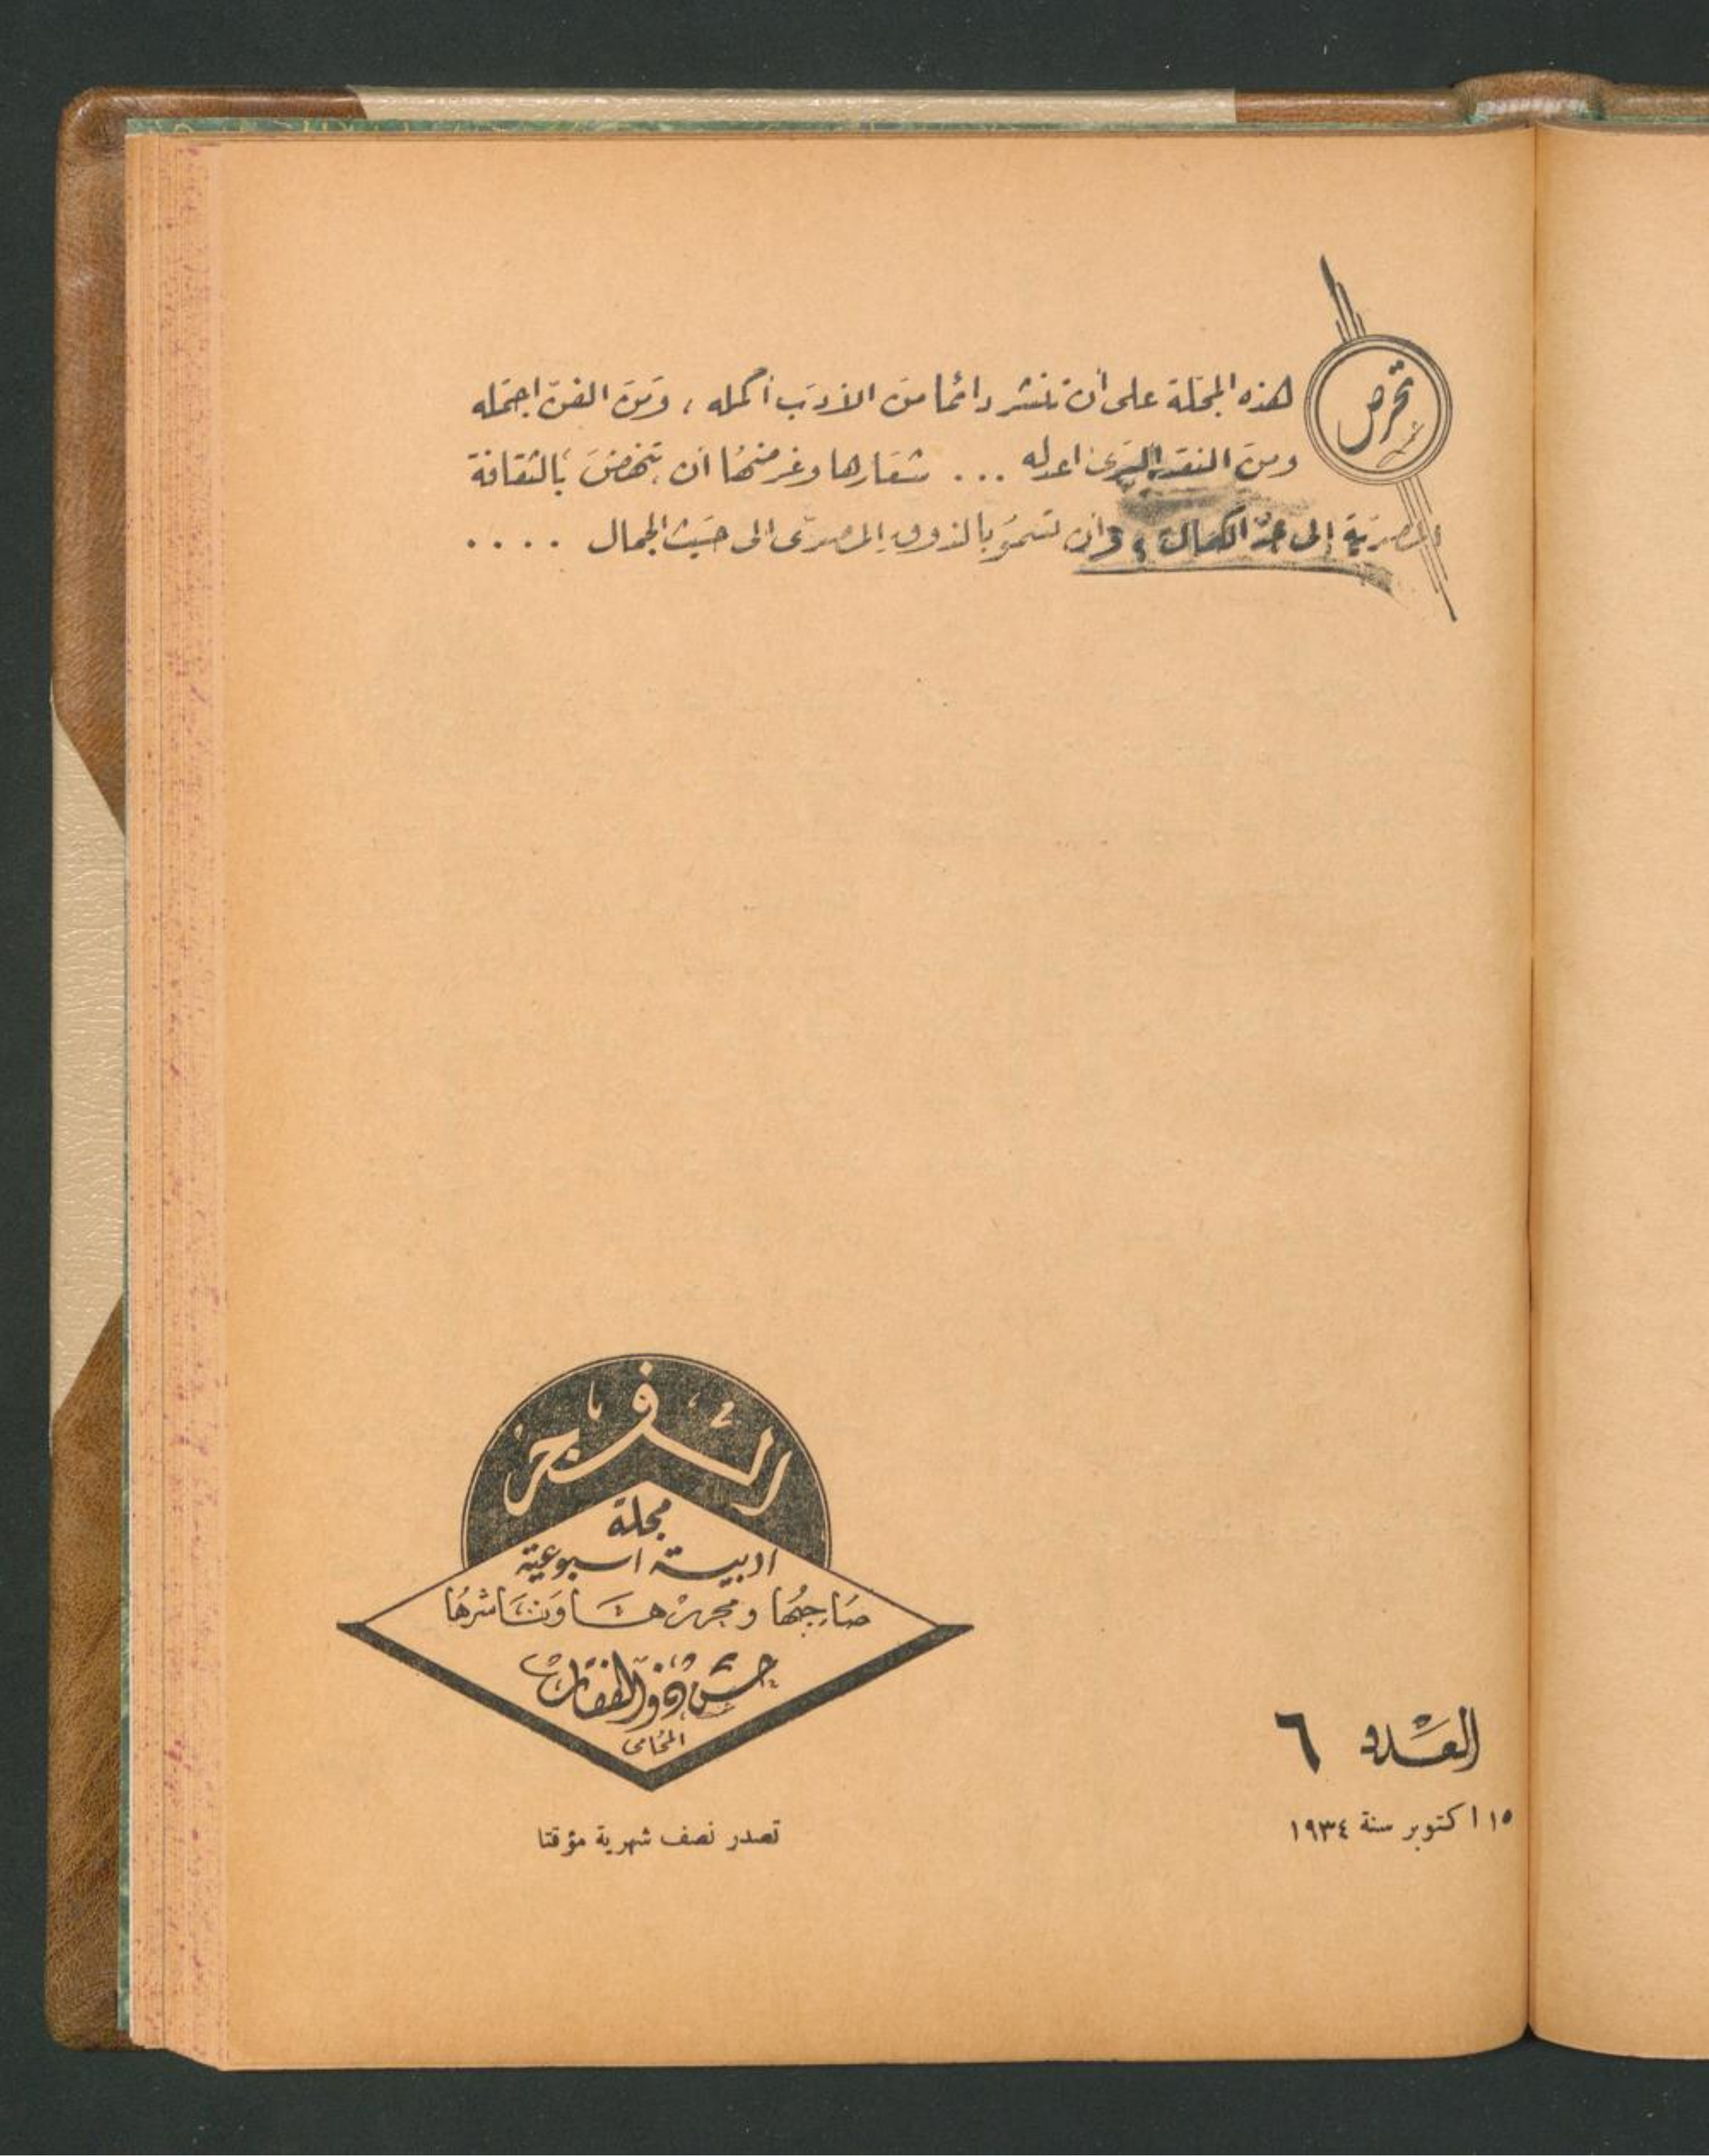 تحرص
هذه المجلة على أن تنشر دائما من الأدب أكمله ، ومن الفن اجمله
ومن النقد اعدله ... شعارها وغرضها أن تنهض بالثقافة
المصرية إلى حد الكمال ، وأن تسمو بالذوق المصرى الى حيث الجمال ....
الفجر
مجلة
ادبية اسبوعية
صاحبها ومحررها وناشرها
حسن ذو الفقار
المحامى
تصدر نصف شهرية مؤقتا
العدد ٦
١٥ اكتوبر سنة ١٩٣٤